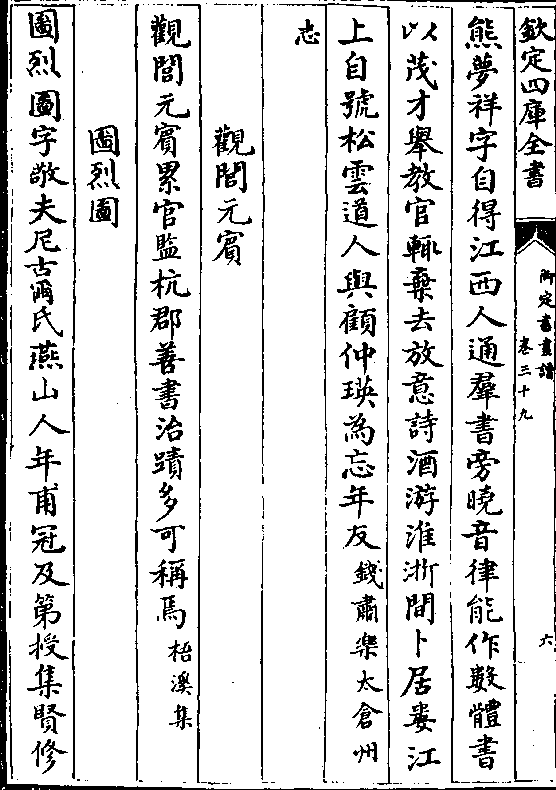 欽定四庫全書
御定書畫譜
卷三十九
六
熊夢祥字自得江西人通羣書旁曉音律能作數體書
以茂才舉教官輒棄去放意詩酒游淮浙間卜居婁江
上自號松雲道人與顧仲瑛為忘年友錢肅樂太倉州
志
觀閭元賓
觀閭元賓累官監杭郡善書治蹟多可稱焉梧溪集
圖烈圖
圖烈圖字敬夫尼古爾氏燕山人年甫冠及第授集賢修